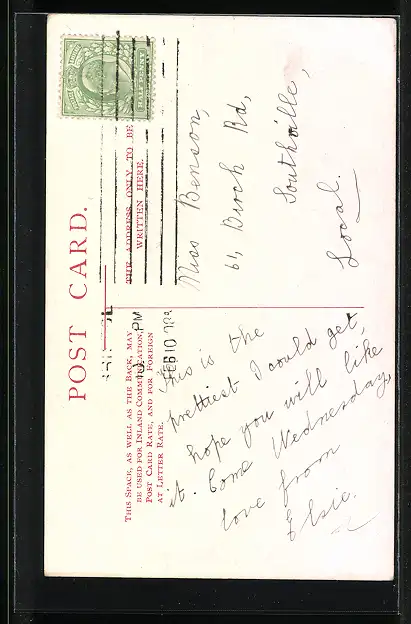 POST CARD.
THE ADDRESS ONLY TO BE
WRITTEN HERE.
HALFPENNY
THIS SPACE, AS WELL AS THE BACK, MAY
BE USED FOR INLAND COMMUNICATION,
POST CARD RATE, AND FOR FOREIGN
AT LETTER RATE.
PM
FEB 10
Miss Benson,
64 Birch Rd,
Southville,
Local.
This is the
prettiest I could get,
hope you will like
it. Come Wednesday,
love from
Elsie.